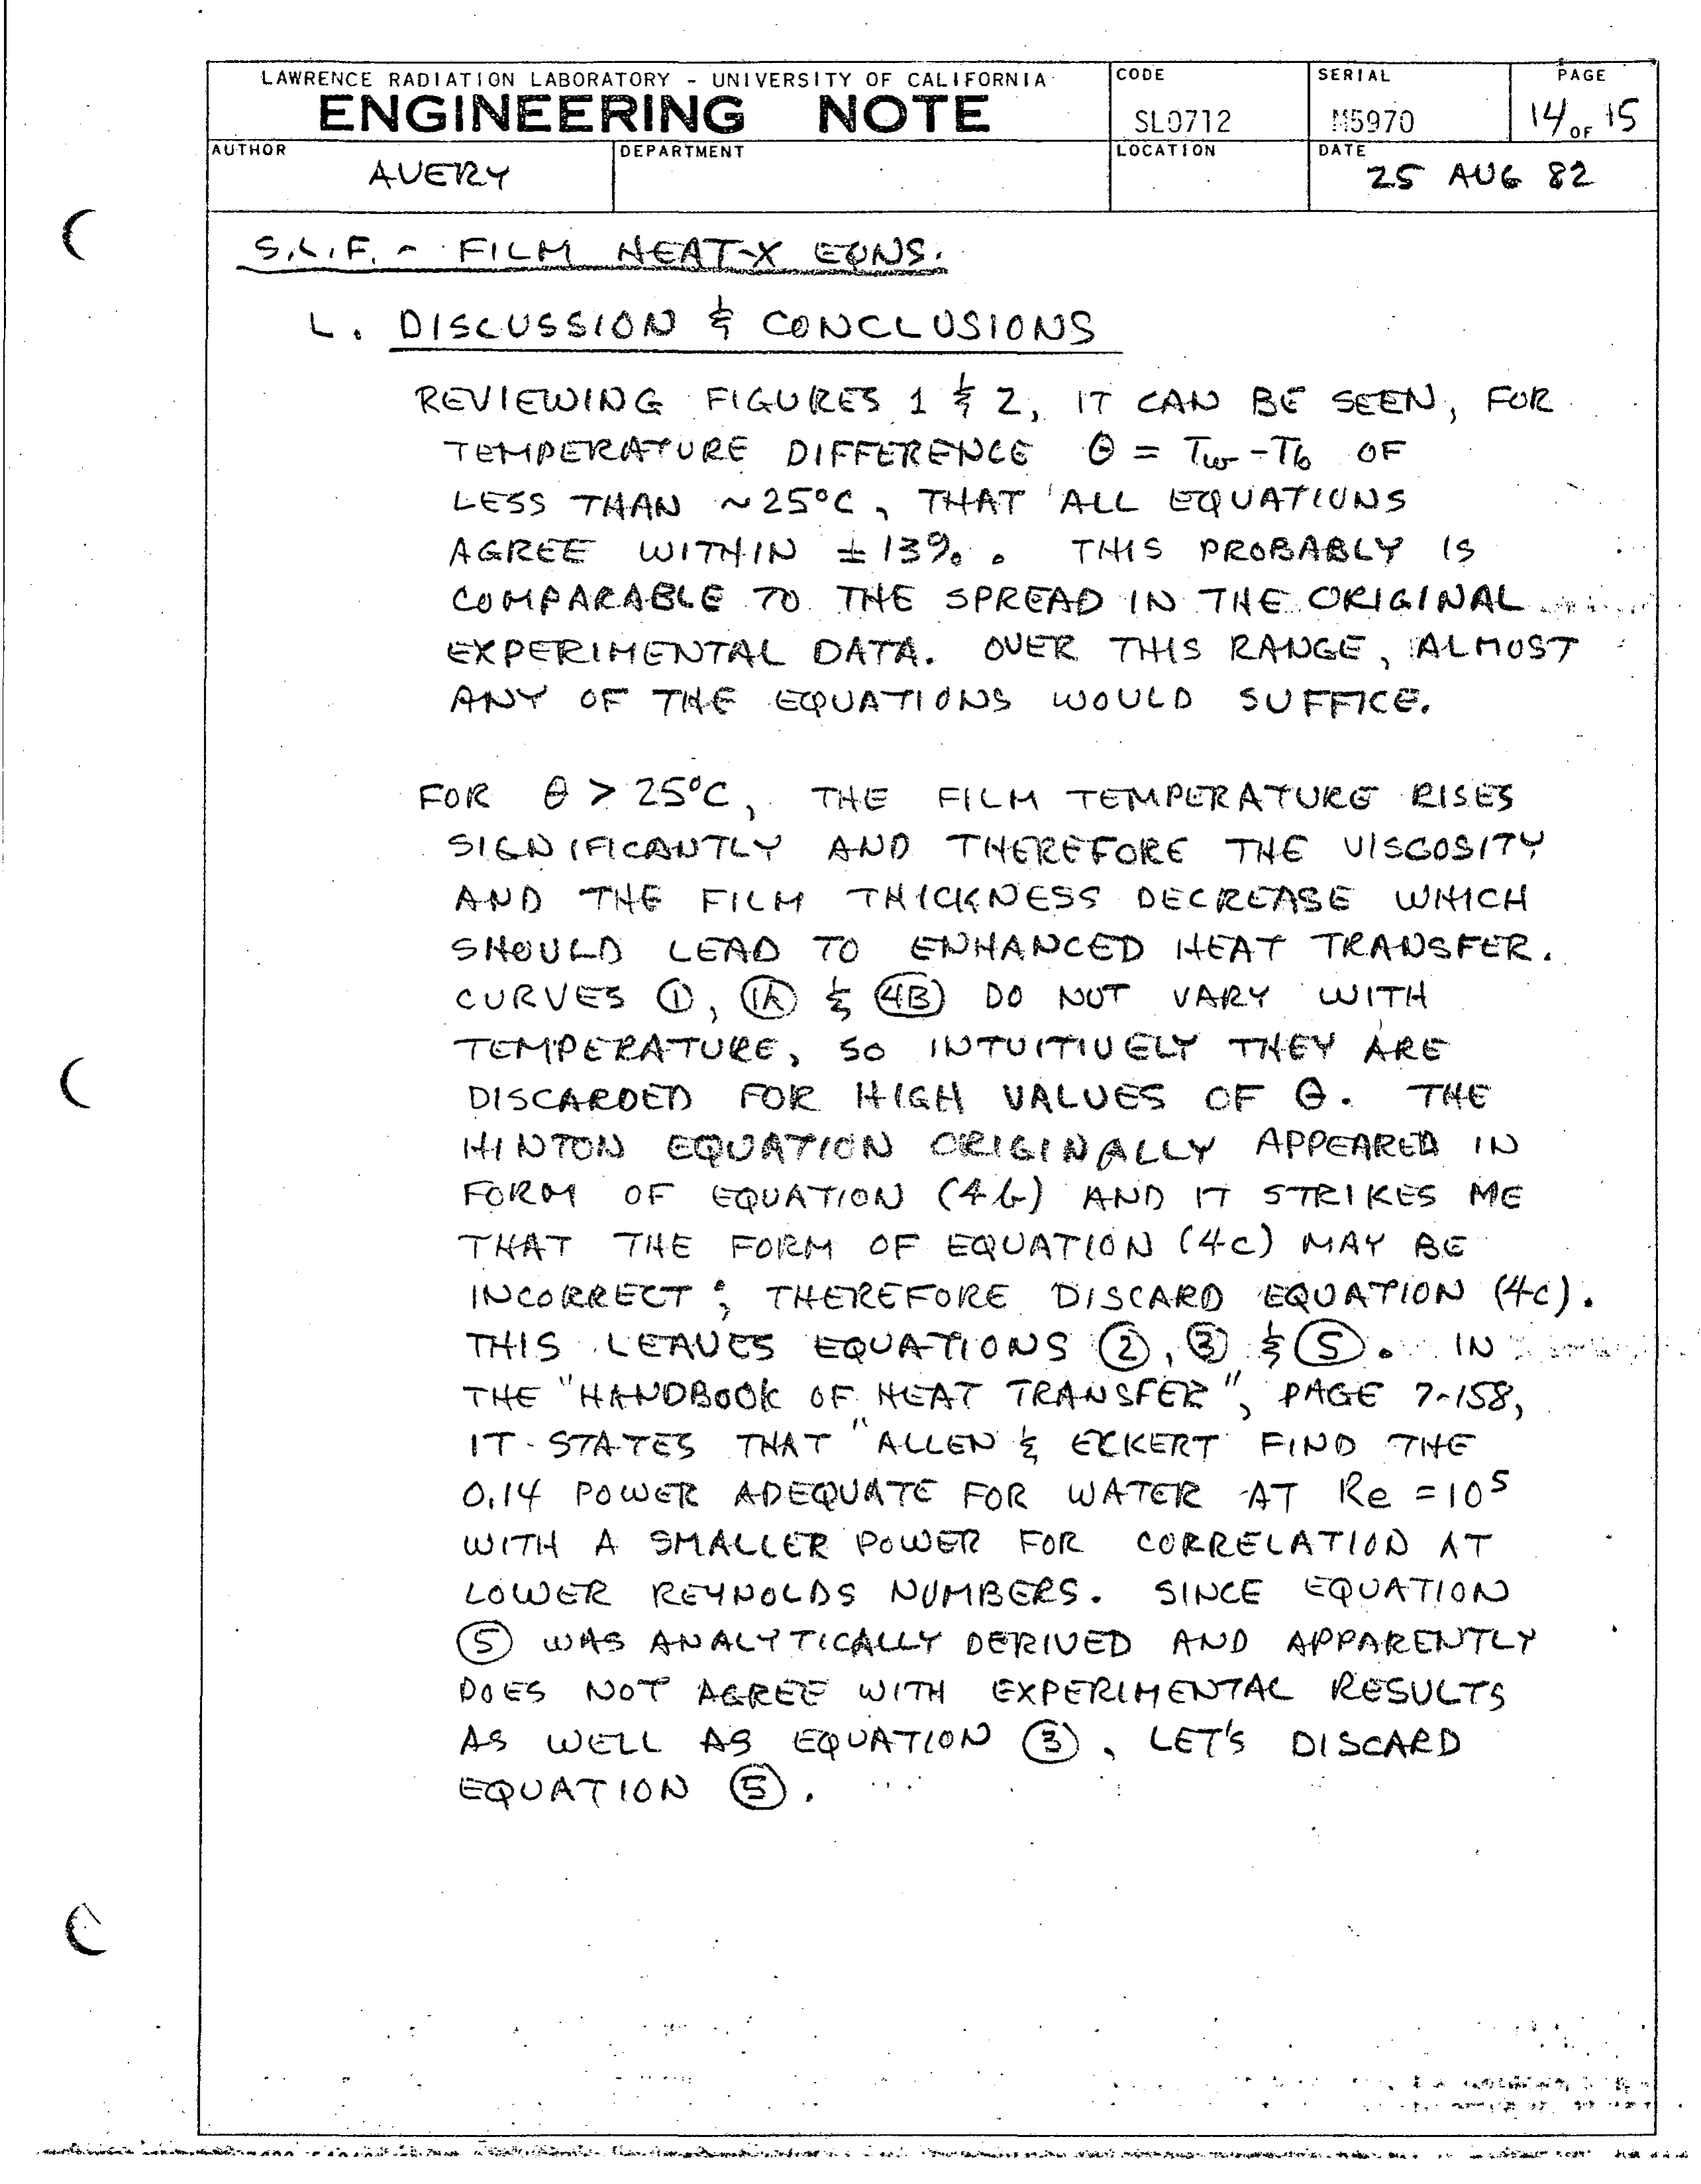 LAWRENCE RADIATION LABORATORY - UNIVERSITY OF CALIFORNIA
ENGINEERING NOTE
CODE
SL0712
SERIAL
M5970
PAGE
14 OF 15
AUTHOR
AVERY
DEPARTMENT
LOCATION
DATE
25 AUG 82
S.L.F. - FILM HEAT-X EQNS.
L. DISCUSSION & CONCLUSIONS
REVIEWING FIGURES 1 & 2, IT CAN BE SEEN, FOR
TEMPERATURE DIFFERENCE θ = Tw - Tb OF
LESS THAN ~25°C, THAT ALL EQUATIONS
AGREE WITHIN ±13%. THIS PROBABLY IS
COMPARABLE TO THE SPREAD IN THE ORIGINAL
EXPERIMENTAL DATA. OVER THIS RANGE, ALMOST
ANY OF THE EQUATIONS WOULD SUFFICE.
FOR θ > 25°C, THE FILM TEMPERATURE RISES
SIGNIFICANTLY AND THEREFORE THE VISCOSITY
AND THE FILM THICKNESS DECREASE WHICH
SHOULD LEAD TO ENHANCED HEAT TRANSFER.
CURVES ①, (1A) & (4B) DO NOT VARY WITH
TEMPERATURE, SO INTUITIVELY THEY ARE
DISCARDED FOR HIGH VALUES OF θ. THE
HINTON EQUATION ORIGINALLY APPEARED IN
FORM OF EQUATION (4b) AND IT STRIKES ME
THAT THE FORM OF EQUATION (4C) MAY BE
INCORRECT; THEREFORE DISCARD EQUATION (4C).
THIS LEAVES EQUATIONS ②, ③ & ⑤. IN
THE "HANDBOOK OF HEAT TRANSFER", PAGE 7-158,
IT STATES THAT "ALLEN & ECKERT FIND THE
0.14 POWER ADEQUATE FOR WATER AT Re = 10⁵
WITH A SMALLER POWER FOR CORRELATION AT
LOWER REYNOLDS NUMBERS. SINCE EQUATION
⑤ WAS ANALYTICALLY DERIVED AND APPARENTLY
DOES NOT AGREE WITH EXPERIMENTAL RESULTS
AS WELL AS EQUATION ③, LET'S DISCARD
EQUATION ⑤.